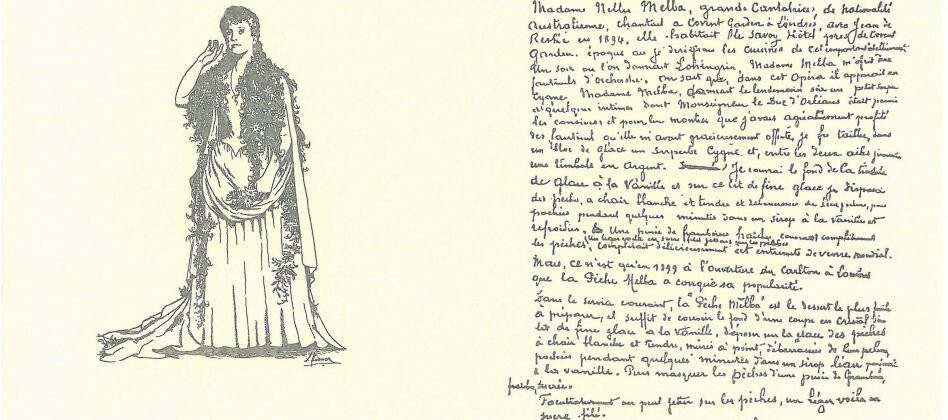 Madame Nellie Melba, grande Cantatrice, de nationalité
Australienne, chantait à Covent Garden à Londres, avec Jean de
Reské en 1894, elle habitait le Savoy Hôtel près de Covent
Garden. époque où je dirigeais les cuisines de cet important établissement
Un soir ou l'on donnait Lohengrin, Madame Melba m'offrit deux
fauteuils d'Orchestre. On sait que, dans cet Opéra il apparait un
cygne. Madame Melba, donnait le lendemain soir un petit souper
à quelques intimes dont Monseigneur le Duc d'Orléans était parmi
les convives et pour lui montrer que j'avais agréablement profité
des fauteuils qu'elle m'avait gracieusement offerts, je fis tailler, dans
un bloc de glace un superbe Cygne, et, entre les deux ailes
une timbale en Argent. Je couvrai le fond de la timbale
de glace à la Vanille et sur ce lit de fine glace je disposai
des pêches, à chair blanche et tendre et débarrassées de leur pelure, puis
pochées pendant quelques minutes dans un sirop à la vanille et
refroidies. Une purée de framboises fraîche couvrant complètement
un léger voile en sucre filé sur les pêches
les pêches, complétait délicieusement cet entremets devenu mondial.
Mais, ce n'est qu'en 1899 à l'ouverture du Carlton à Londres
que la Pêche Melba a conquis sa popularité.
Dans le service courant, la "Pêche Melba" est le dessert le plus facile
à préparer, il suffit de couvrir le fond d'une coupe en Cristal d'un
lit de fine glace à la Vanille, déposer sur la glace des pêches
à chair blanche et tendre, mûries à point, débarrassées de leur pelure,
pochées pendant quelques minutes dans un sirop léger parfumé
à la vanille. Puis masquer les pêches d'une purée de framboises
fraîche, sucrée.
Facultativement on peut jeter sur les pêches, un léger voile en
sucre filé.